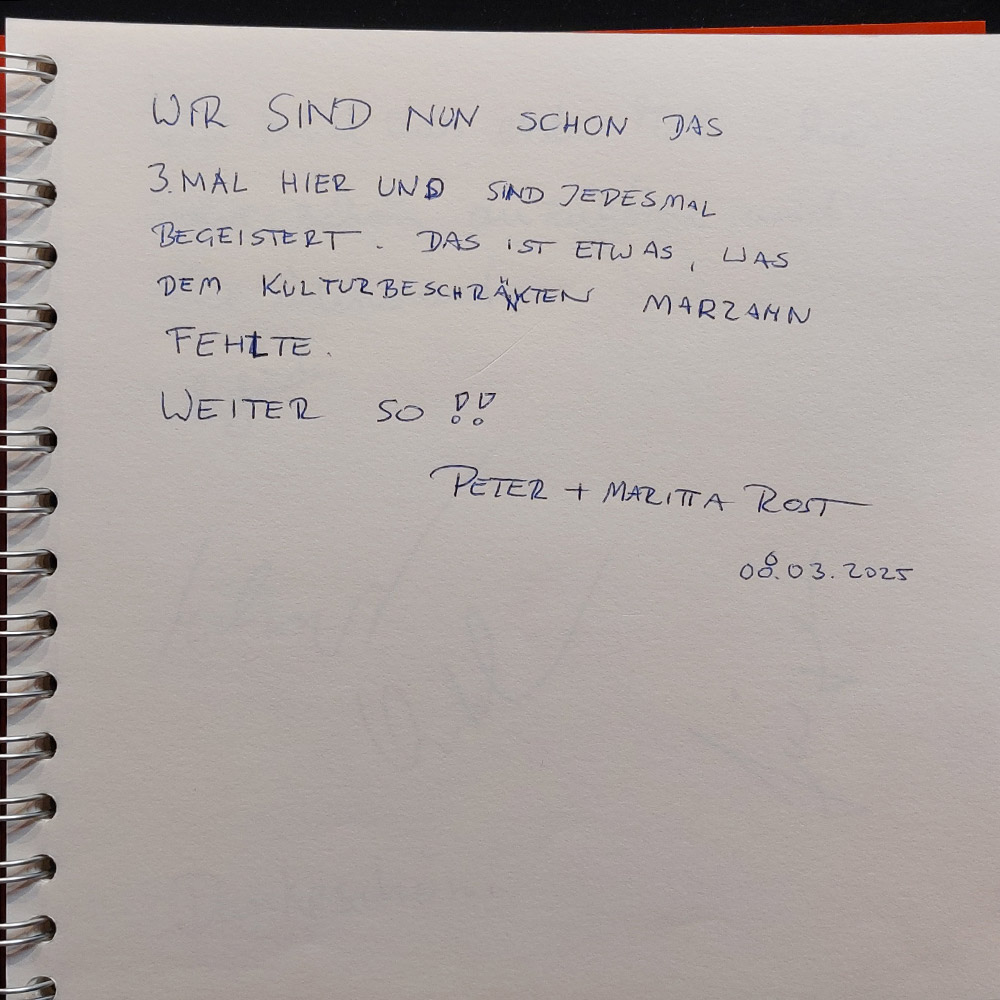 WIR SIND NUN SCHON DAS
3. MAL HIER UND SIND JEDESMAL
BEGEISTERT. DAS IST ETWAS, WAS
DEM KULTURBESCHRÄNKTEN MARZAHN
FEHLTE.
WEITER SO !!
PETER + MARITTA ROST
08.03.2025